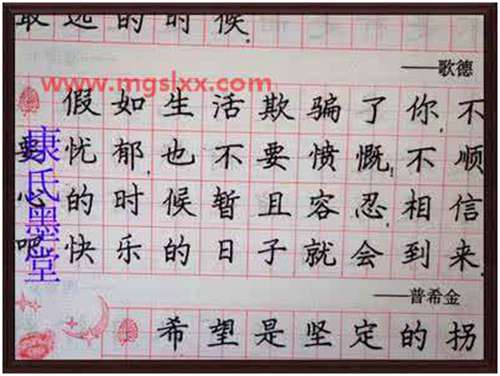 远的时候.
www.mgslxx.com
——歌德
假如生活欺骗了你,不
要忧郁,也不要愤慨,不顺
心的时候暂且容忍,相信
吧,快乐的日子就会到来.
康氏墨堂
——普希金
希望是坚定的拐